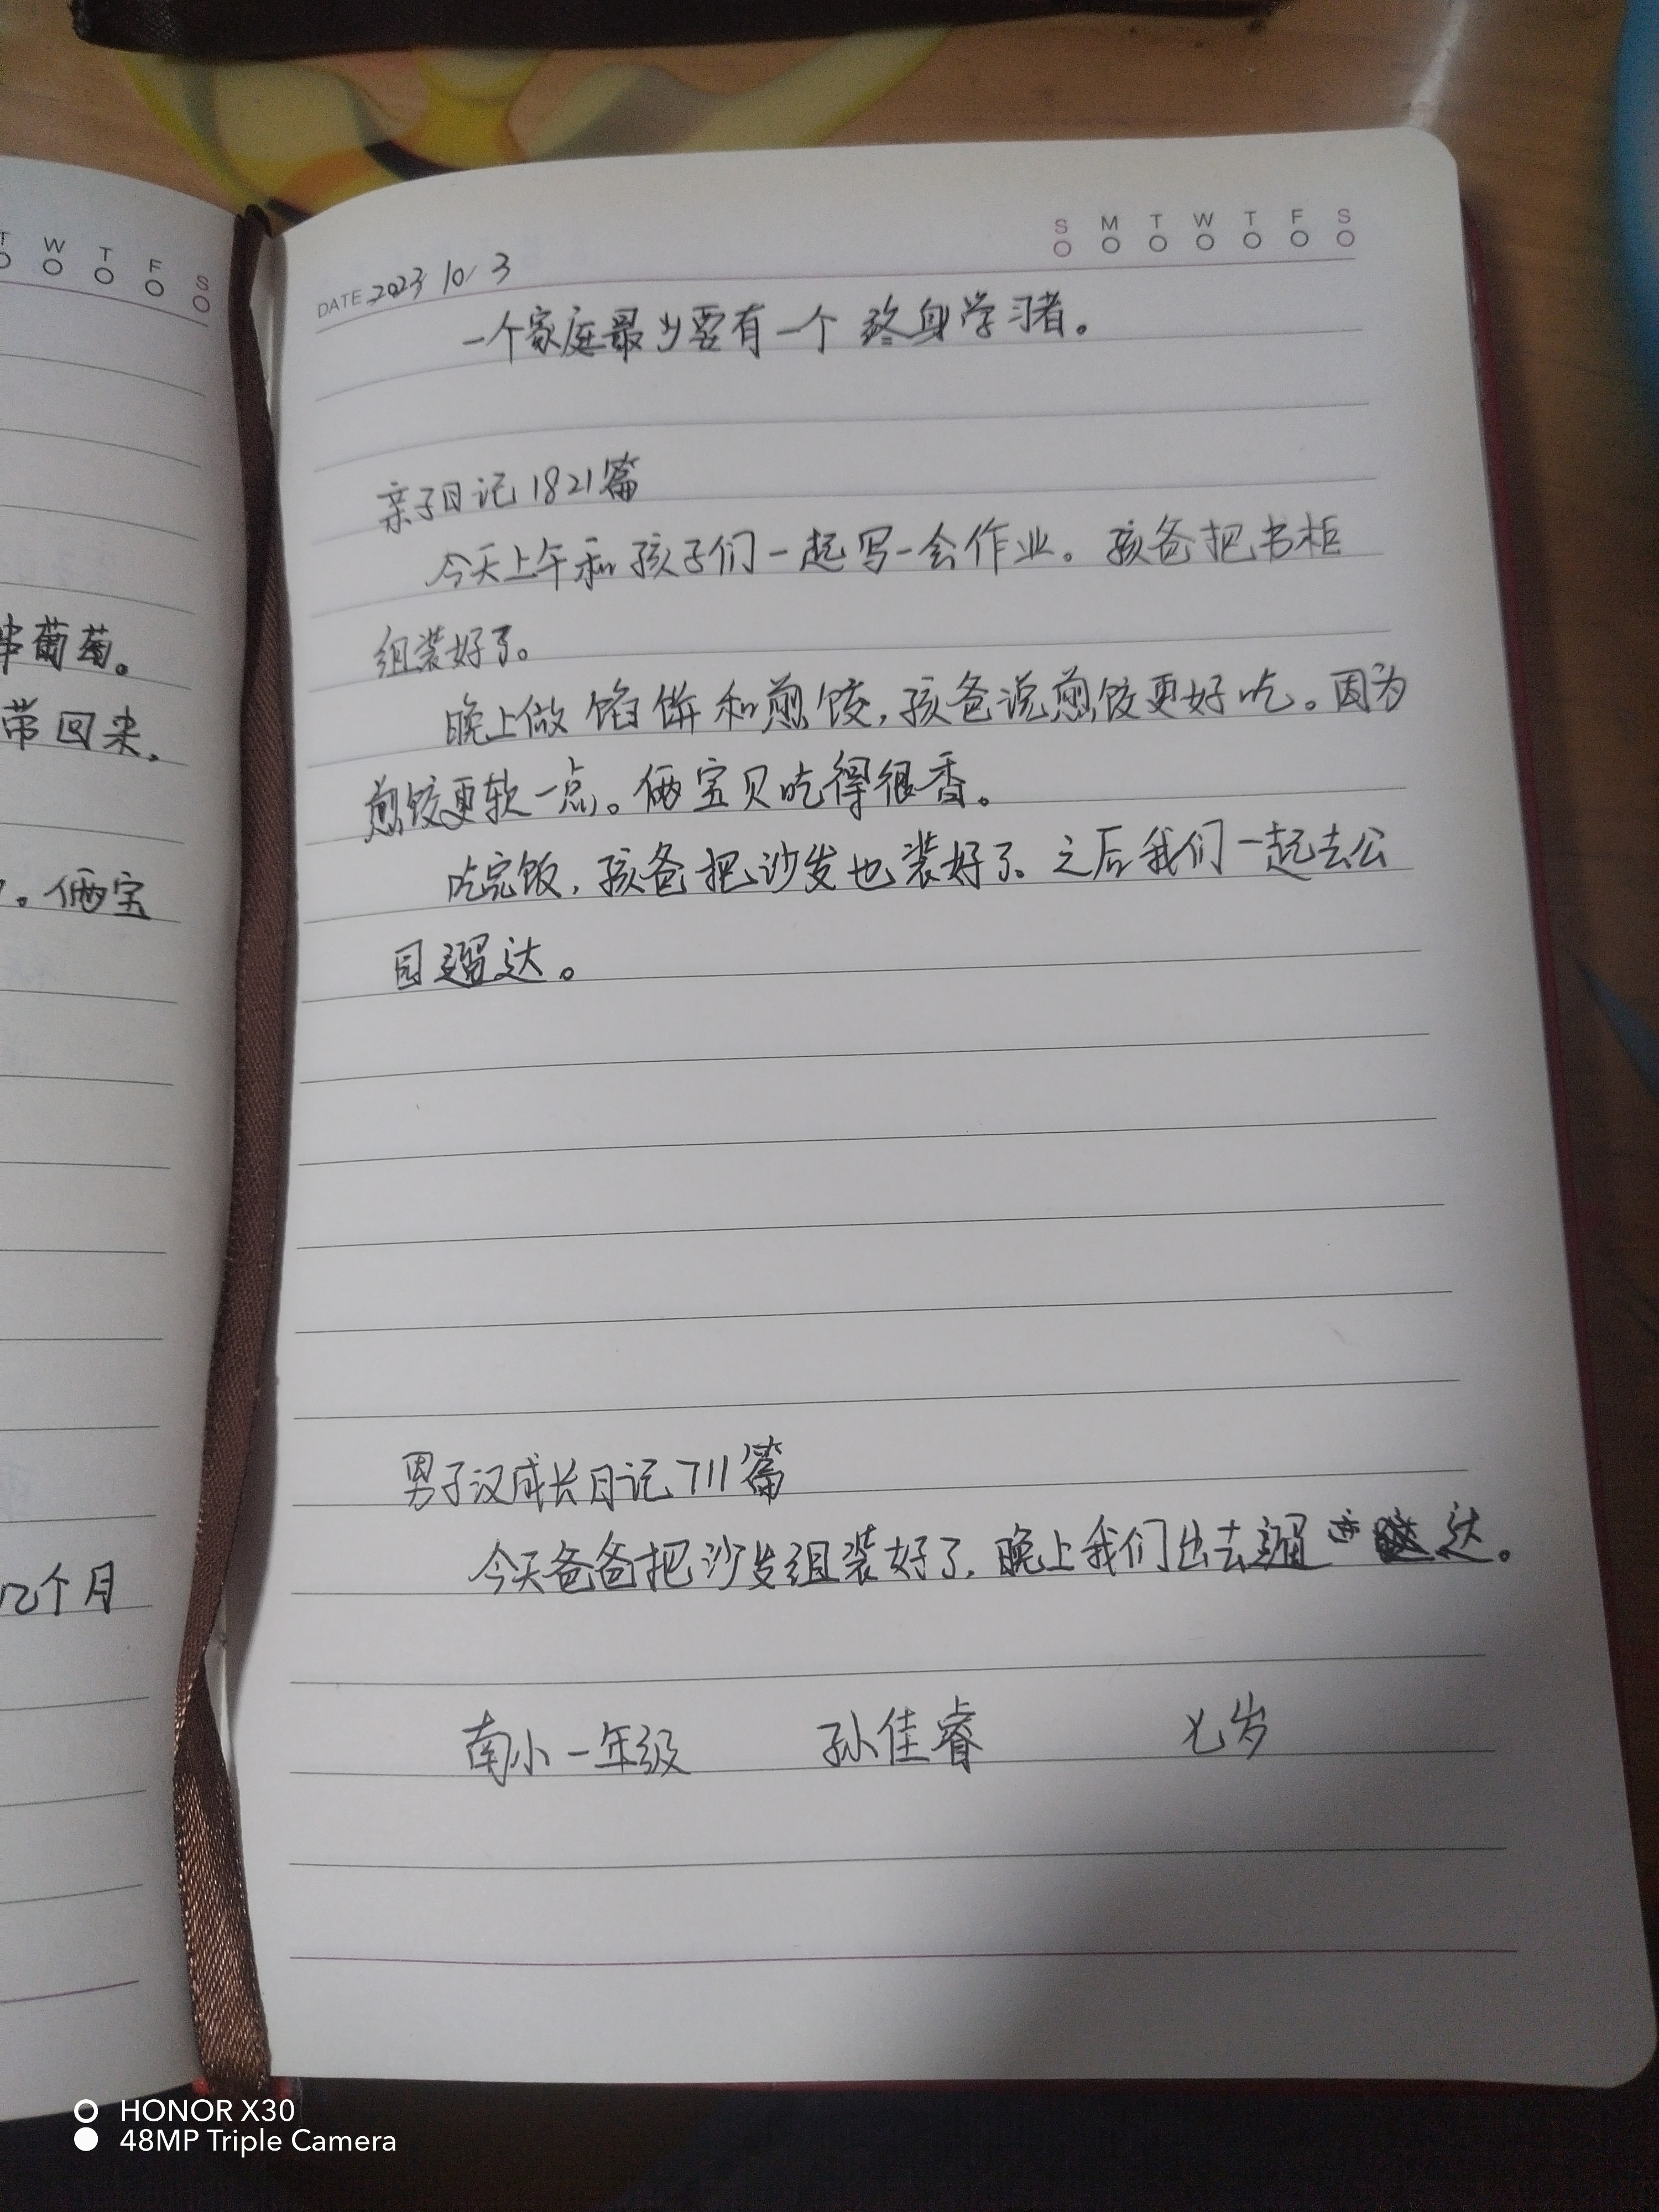 T W T F S
串葡萄。
带回来，
。俩宝
12个月
S M T W T F S
DATE 2023 10 3
一个家庭最少要有一个 终身学习者。
亲子日记1821篇
今天上午和孩子们一起写一会作业。孩爸把书柜
组装好了。
晚上做馅饼和煎饺，孩爸说煎饺更好吃。因为
煎饺更软一点。俩宝贝吃得很香。
吃完饭，孩爸把沙发也装好了。之后我们一起去公
园遛达。
男子汉成长日记711篇
今天爸爸把沙发组装好了，晚上我们出去遛达。
南小一年级 孙佳睿 七岁
HONOR X30
48MP Triple Camera